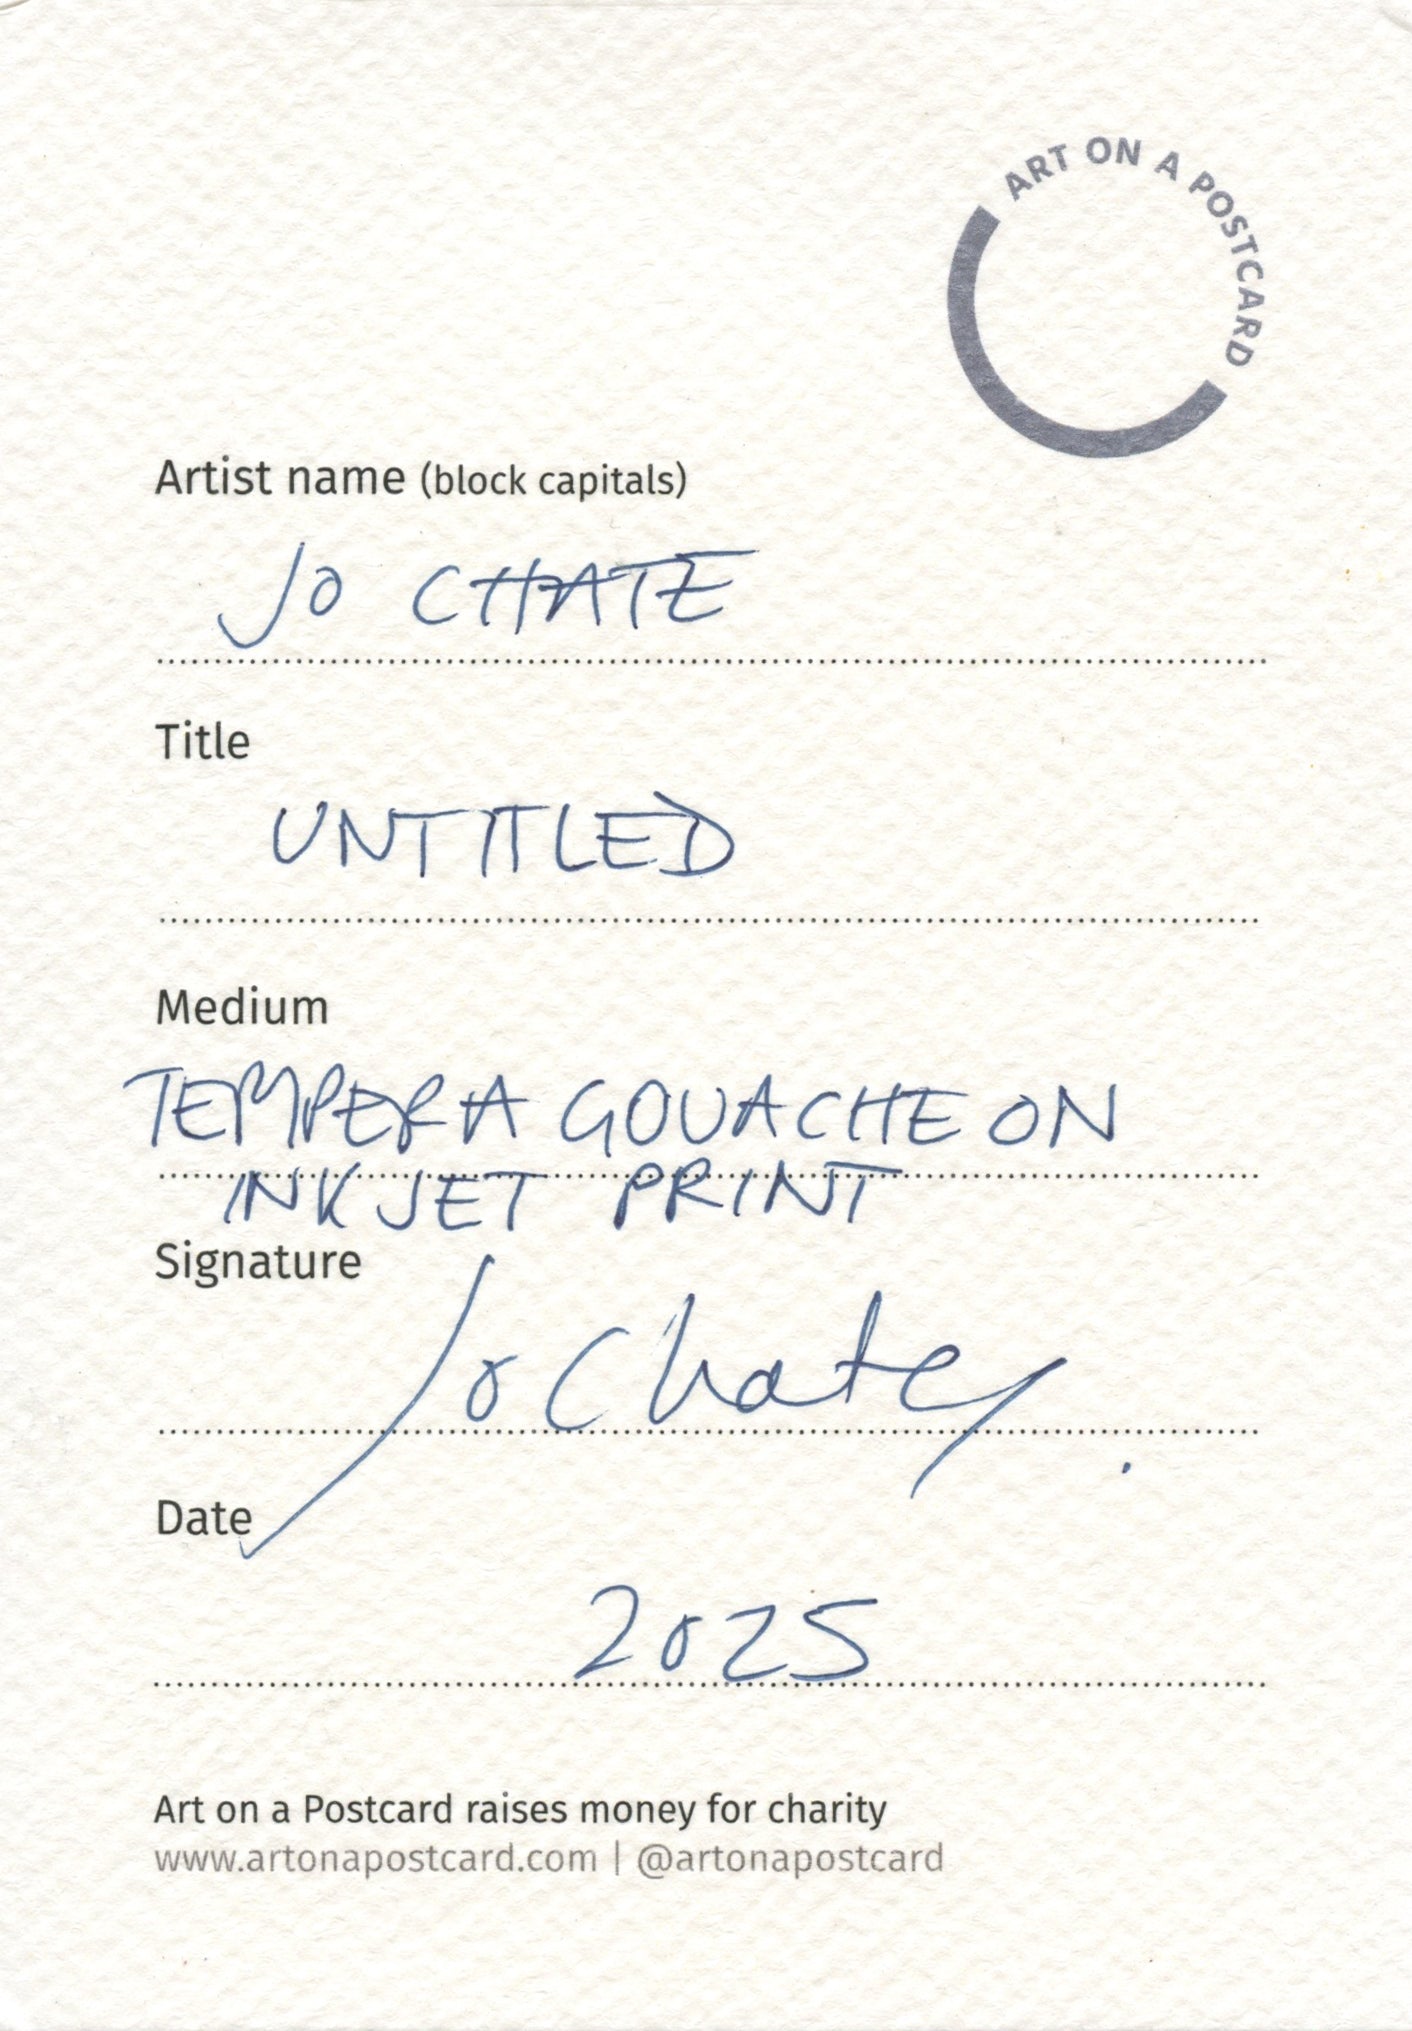 ART ON A POSTCARD
Artist name (block capitals)
JO CHATE
Title
UNTITLED
Medium
TEMPERA GOUACHE ON
INKJET PRINT
Signature
Jo Chate
Date
2025
Art on a Postcard raises money for charity
www.artonapostcard.com | @artonapostcard